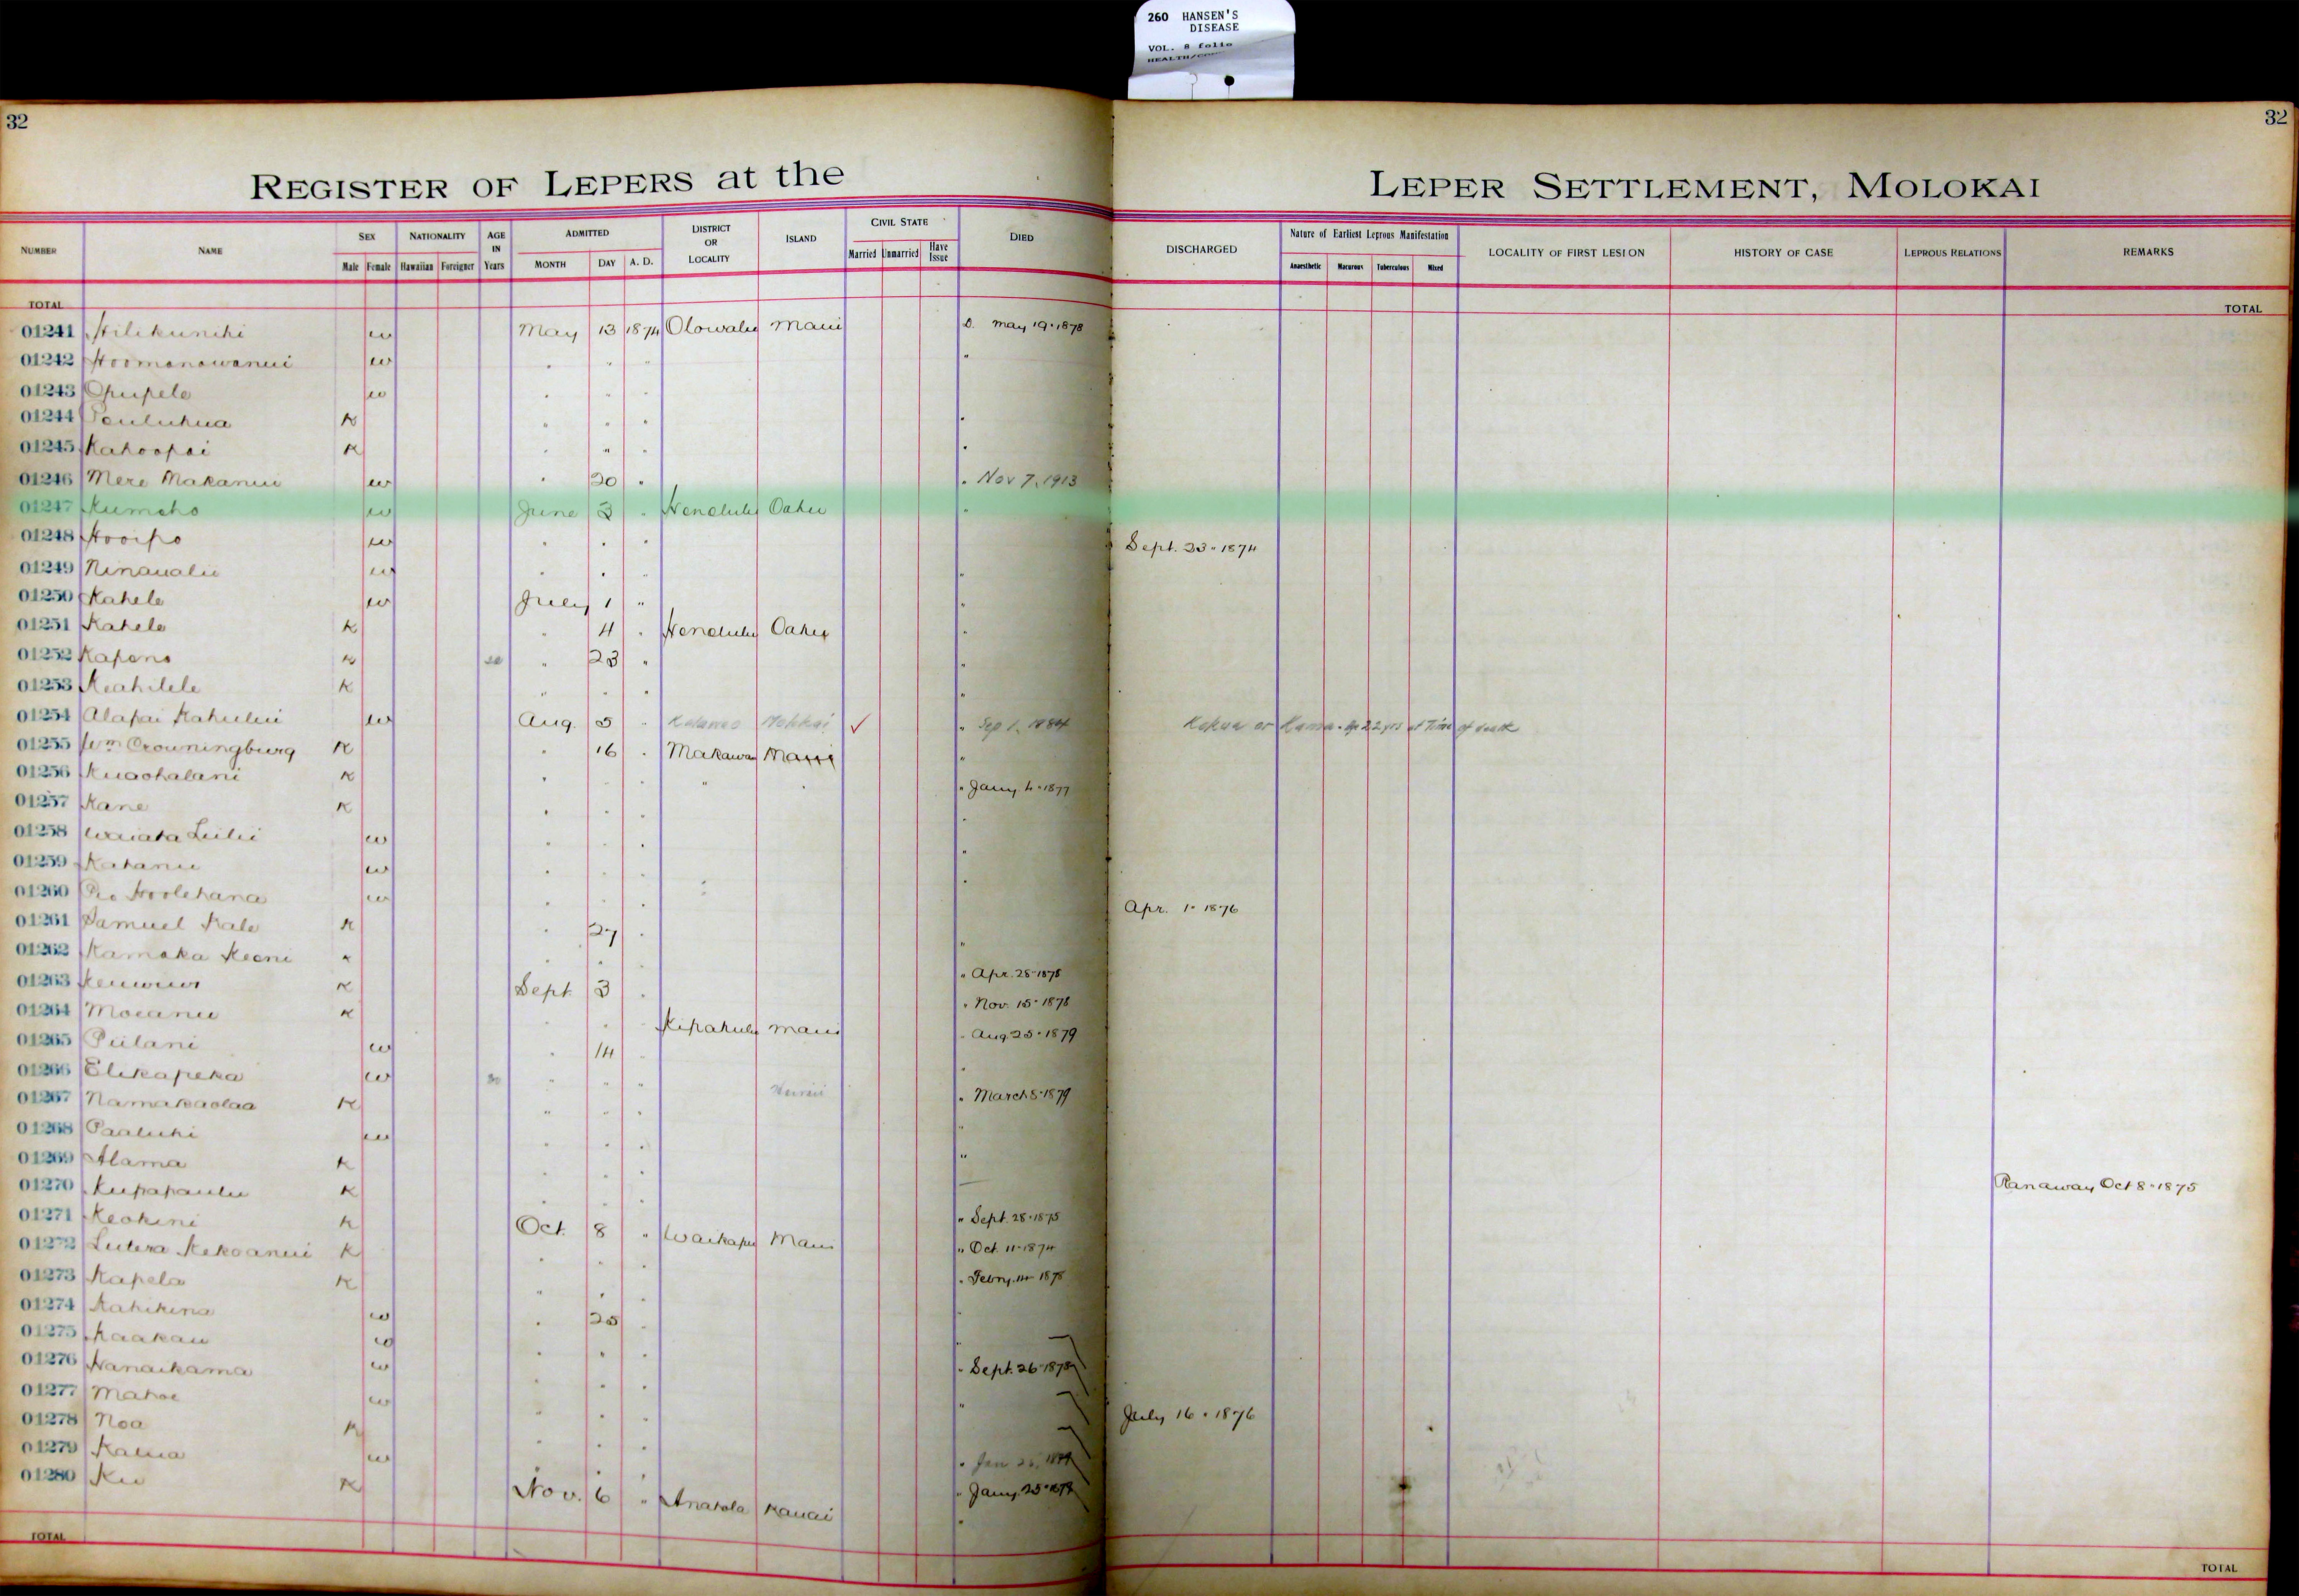 260 HANSEN'S
DISEASE
VOL. 8 folio
32
32
REGISTER OF LEPERS at the
LEPER SETTLEMENT, MOLOKAI
NUMBER NAME SEX Male Female NATIONALITY Hawaiian Foreigner AGE IN Years ADMITTED MONTH DAY A. D. DISTRICT OR LOCALITY ISLAND CIVIL STATE Married Unmarried Have Issue DIED
DISCHARGED Nature of Earliest Leprous Manifestation Anaesthetic Macurous Tuberculous Mixed LOCALITY OF FIRST LESION HISTORY OF CASE LEPROUS RELATIONS REMARKS
TOTAL
TOTAL
01241 Hilikunihi w May 13 1874 Olowalu Maui D. May 19 · 1878
01242 Hoomanawanui w " " " "
01243 Opupele w " " "
01244 K " " " "
01245 Kahoopai K " " " "
01246 Mere Makanui w " 20 " " Nov 7, 1913
01247 Kumaho w June 3 " Honolulu Oahu "
01248 Hooipo w " " " Sept. 23 · 1874
01249 Ninaualu w " " " "
01250 Kahele w July 1 " "
01251 Kahele K " 4 " Honolulu Oahu "
01252 Kapena K " 23 " "
01253 Keahilele K " " " "
01254 Alapai Kahului w Aug. 5 " Kalawao Molokai ✓ " Sep 1, 1884 Kokua or Kamaa. Age 22 yrs at Time of death
01255 Wm Crowningburg K " 16 " Makawao Maui "
01256 Kuaohalani K " " " " " " Jany. 4 · 1877
01257 Kane K " " " "
01258 Waiata Liilii w " " " "
01259 Kahanu w " " " "
01260 Hoolehana w " " " Apr. 1 · 1876
01261 Samuel Kale K " 27 " "
01262 Kamaka Keoni K " " " Apr. 28 · 1878
01263 K Sept. 3 " " Nov. 15 · 1878
01264 Moeanu K " " " Kipahulu Maui " Aug 25 · 1879
01265 Piilani w " 14 " "
01266 Elikapeka w 30 " " " Hawaii " March 8 · 1879
01267 Namakaolaa K " " " "
01268 Paaluhi w " " " "
01269 Alama K " " "
01270 Kupapaulu K " " " Ranaway Oct 8 · 1875
01271 Keokini K Oct. 8 " Waikapu Maui " Sept. 28 · 1875
01272 Lutera Kekoanui K " " " Oct. 11 · 1874
01273 Kapela K " " " Febry. 14 · 1878
01274 Kahikina w " 25 " "
01275 Kaakau w " " " "
01276 Hanaikama w " " " Sept. 26 · 1878
01277 Mahoe w " " " "
01278 Noa K " " " July 16 · 1876
01279 Kalua w " " " Jan 26,
01280 Ku K Nov. 6 " Anahola Kauai " Jany. 25 ·
TOTAL
TOTAL